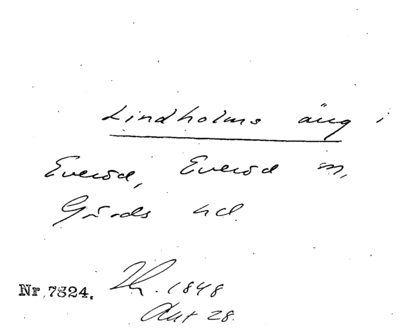 Lindholms äng i
Everöd, Everöd sn,
Gärds hd.
Nr 7824. Th. 1848
Akt 28.